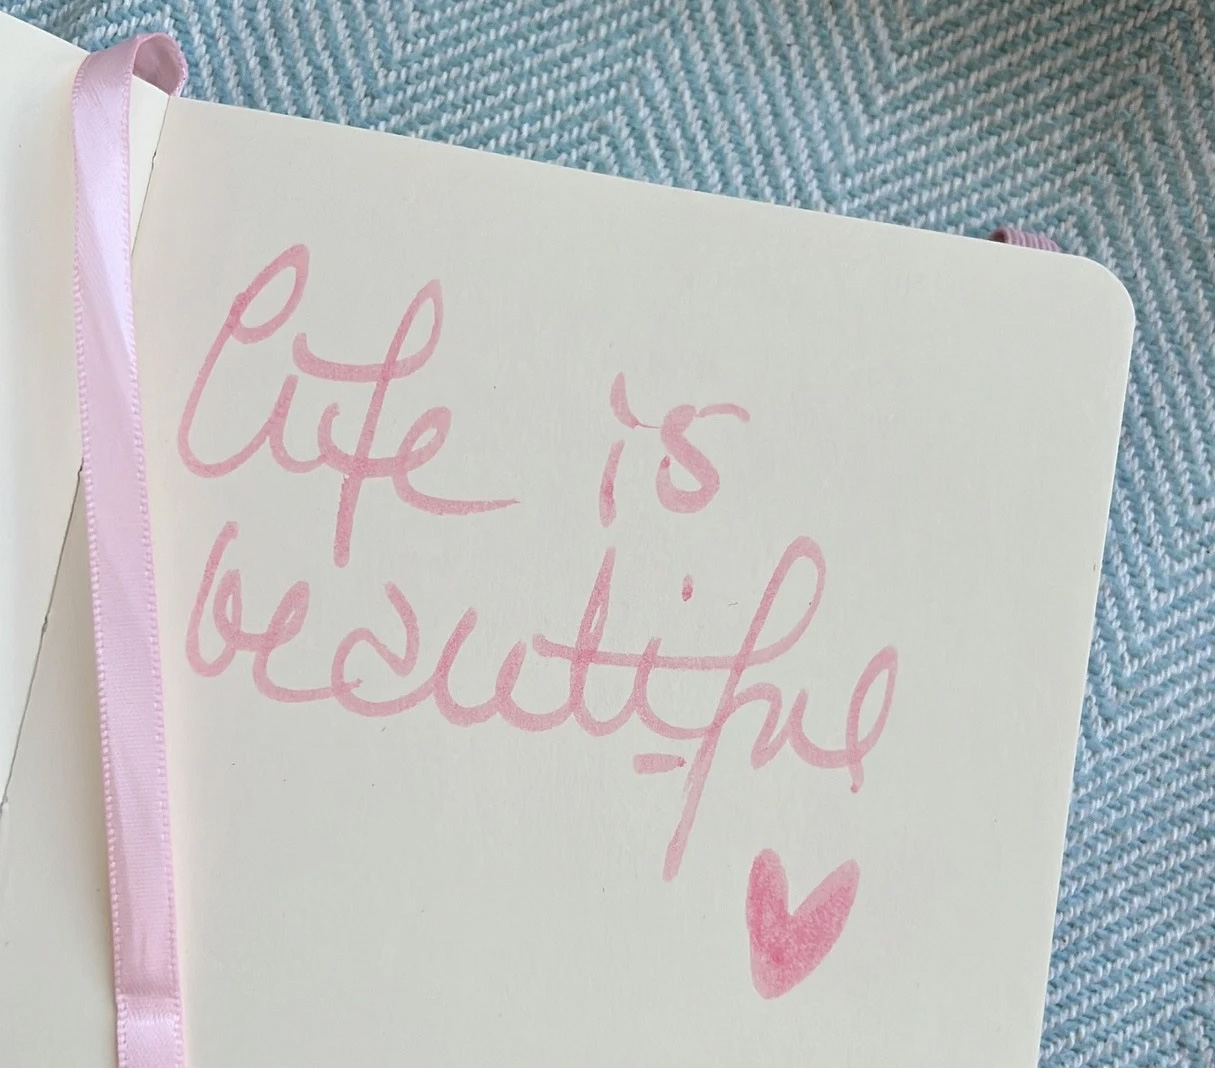 Life is
beautiful